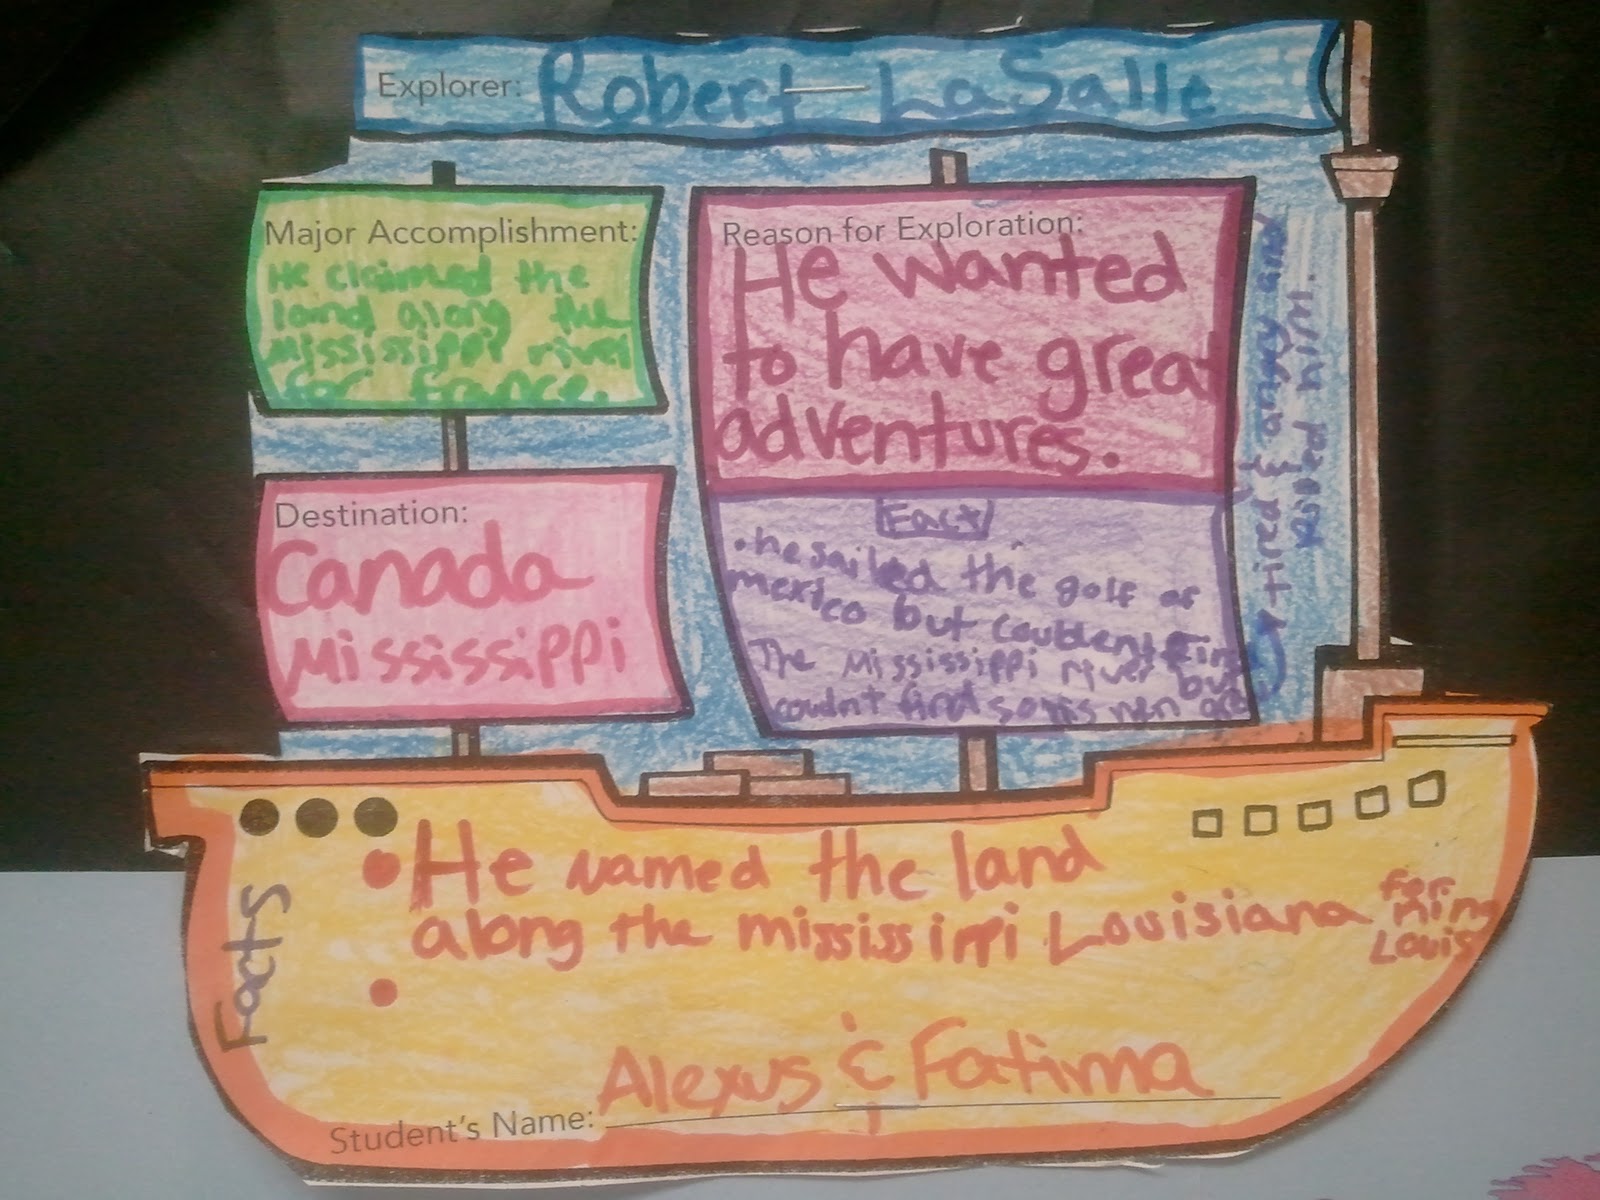 Explorer: Robert LaSalle
Major Accomplishment:
He claimed the
land along the
mississippi river
for france.
Reason for Exploration:
He wanted
to have great
adventures.
Destination:
Canada
Mississippi
Fact
• he sailed the golf of
mexico but
The Mississippi river but
couldn't find so his men
tired & angry and
killed him.
Facts
• He named the land
along the mississippi Louisiana for
King
Louis
•
Student's Name: Alexus & Fatima